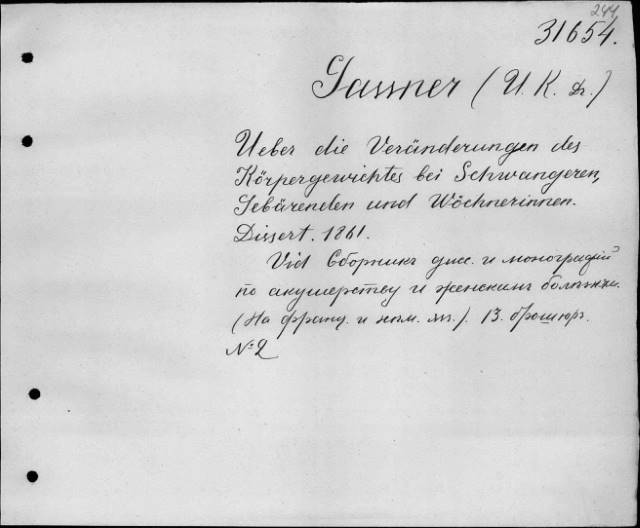 244
31654.
Gassner (U. K. Dr.)
Ueber die Veränderungen des
Körpergewichtes bei Schwangeren,
Gebärenden und Wöchnerinnen.
Dissert. 1861.
Vid Сборникъ дисс. и монографій
по акушерству и женскимъ болѣзнямъ.
(На франц. и нѣм. яз.). 13. брошюръ.
№ 2